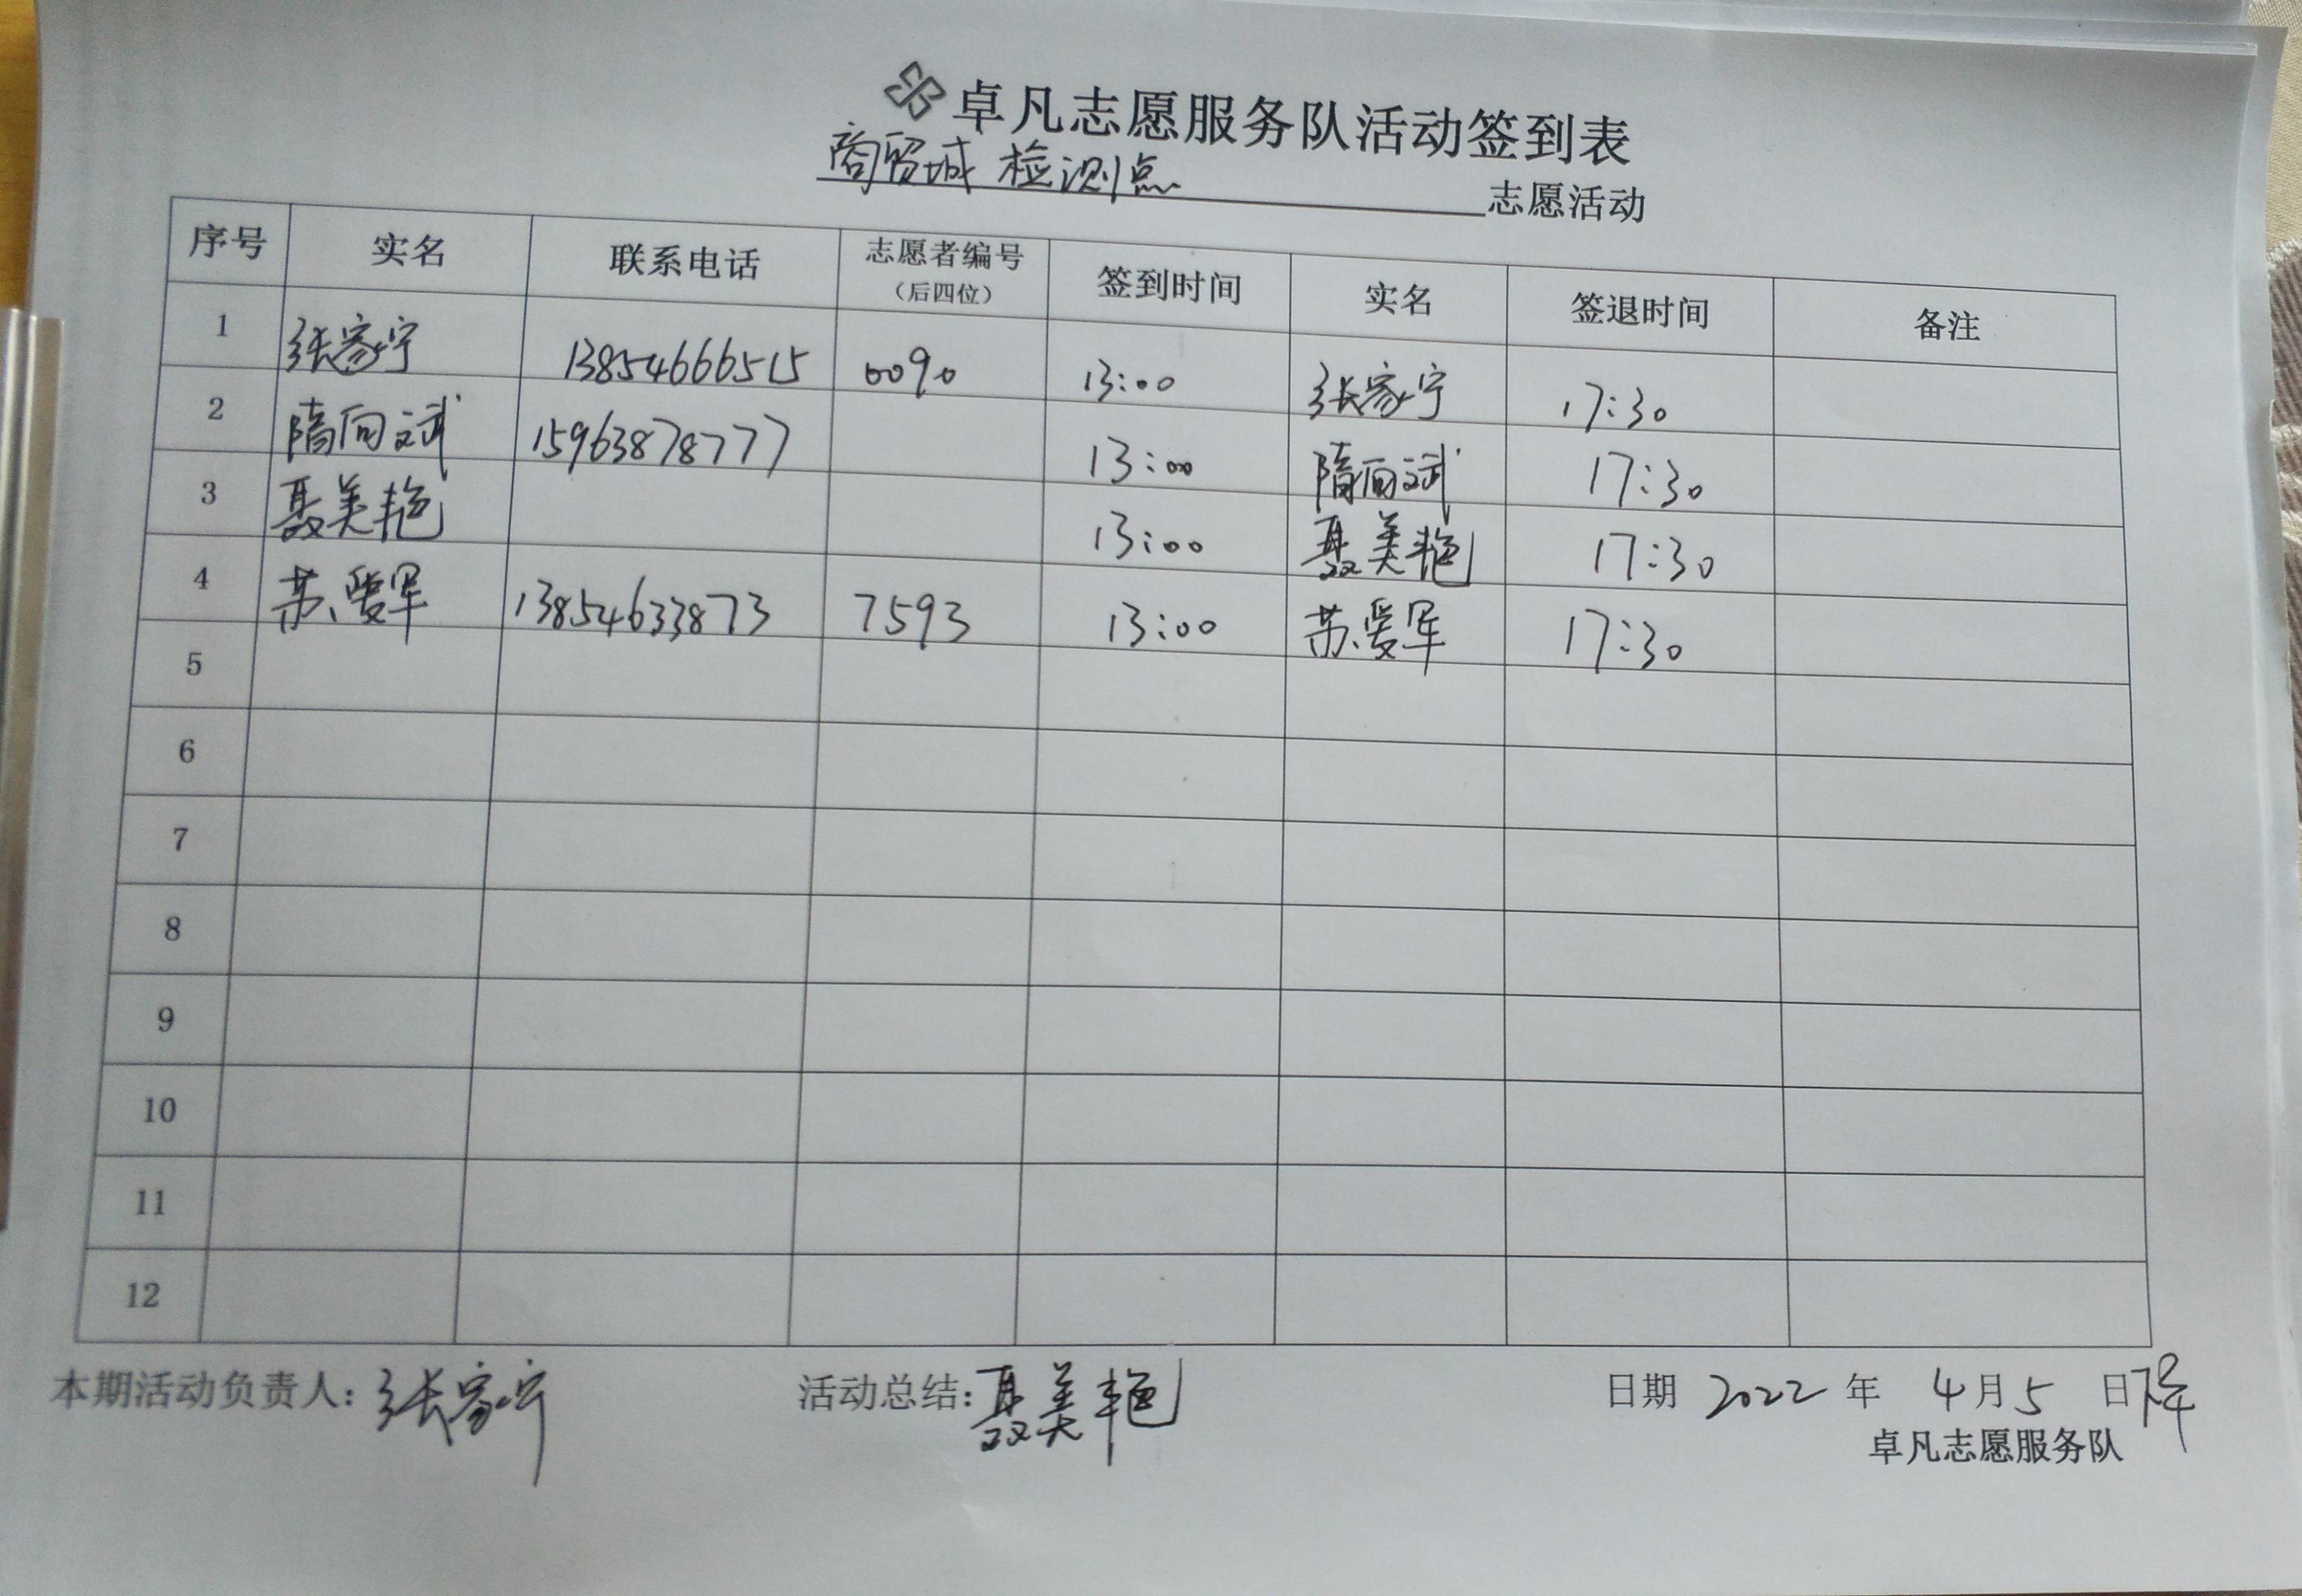 卓凡志愿服务队活动签到表
商贸城 检测点 志愿活动
序号 实名 联系电话 志愿者编号（后四位） 签到时间 实名 签退时间 备注
1 张家宁 13854666515 0090 13:00 张家宁 17:30
2 隋向斌 15963878777 13:00 隋向斌 17:30
3 聂美艳 13:00 聂美艳 17:30
4 苏爱军 13854633873 7593 13:00 苏爱军 17:30
5
6
7
8
9
10
11
12
本期活动负责人：张家宁 活动总结：聂美艳 日期 2022 年 4月5 日下午
卓凡志愿服务队